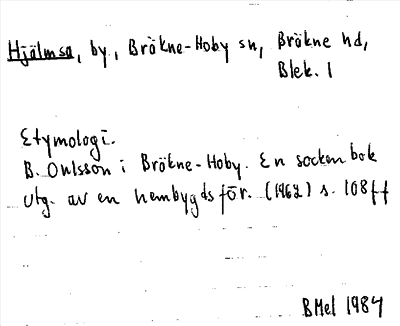 Hjälmsa, by, Bräkne-Hoby sn, Bräkne hd,
Blek. l
Etymologi.
B. Ohlsson i Bräkne-Hoby. En sockenbok
utg. av en hembygdsför. (1962) s. 108ff
BMel 1984